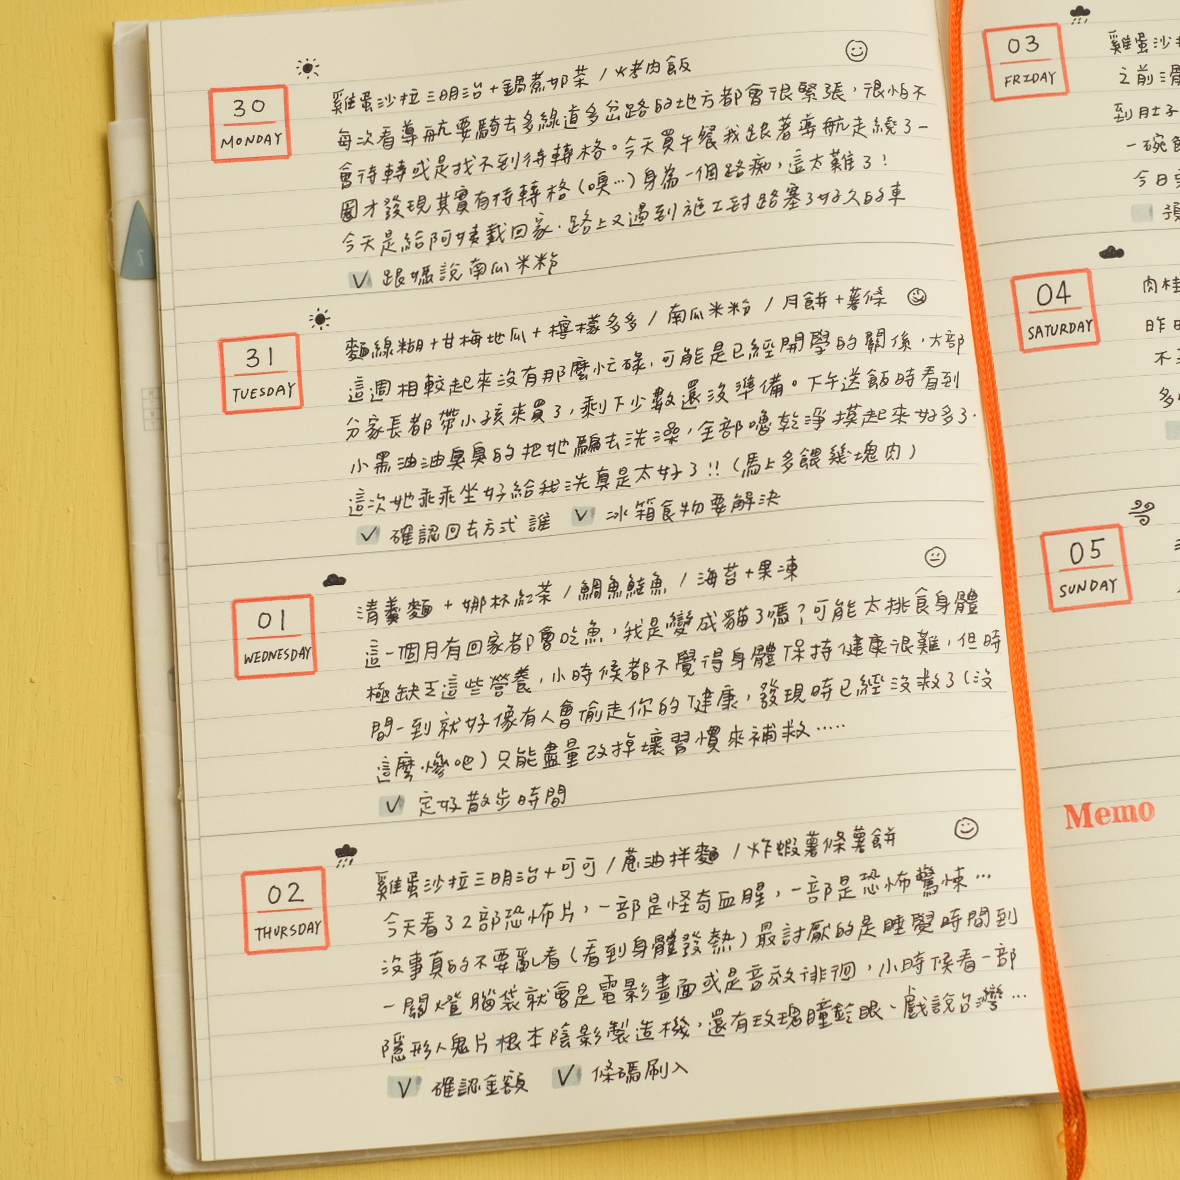 30
MONDAY
雞蛋沙拉三明治+鍋煮奶茶/火烤肉飯
每次看導航要騎去多線道多岔路的地方都會很緊張,很怕不
會待轉或是找不到待轉格。今天買午餐我跟著導航走繞了一
圈才發現其實有待轉格(哭…)身為一個路痴,這太難了!
今天是給阿姨載回家.路上又遇到施工封路塞了好久的車
跟媽說南瓜米粉
31
TUESDAY
麵線糊+甘梅地瓜+檸檬多多/南瓜米粉/月餅+薯條
這週相較起來沒有那麼忙碌,可能是已經開學的關係,大部
分家長都帶小孩來買了,剩下少數還沒準備。下午送飯時看到
小黑油油臭臭的把她騙去洗澡,全部嚕乾淨摸起來好多了.
這次她乖乖坐好給我洗真是太好了!!(馬上多餵幾塊肉)
確認回去方式 誰
冰箱食物要解決
01
WEDNESDAY
清羹麵+娜杯紅茶/鯛魚鮭魚/海苔+果凍
這一個月有回家都會吃魚,我是變成貓了嗎?可能太挑食身體
極缺乏這些營養,小時候都不覺得身體保持健康很難,但時
間一到就好像有人會偷走你的健康,發現時已經沒救了(沒
這麼慘吧)只能盡量改掉壞習慣來補救.....
定好散步時間
02
THURSDAY
雞蛋沙拉三明治+可可/蔥油拌麵/炸蝦薯條薯餅
今天看了2部恐怖片,一部是怪奇血腥,一部是恐怖驚悚…
沒事真的不要亂看(看到身體發熱)最討厭的是睡覺時間到
一關燈腦袋就會是電影畫面或是音效徘徊,小時候看一部
隱形人鬼片根本陰影製造機,還有玫瑰瞳鈴眼、戲說台灣…
確認金額
條碼刷入
03
FRIDAY
雞蛋沙
之前
到肚子
一碗
今日
04
SATURDAY
肉桂
昨
不
多
05
SUNDAY
Memo